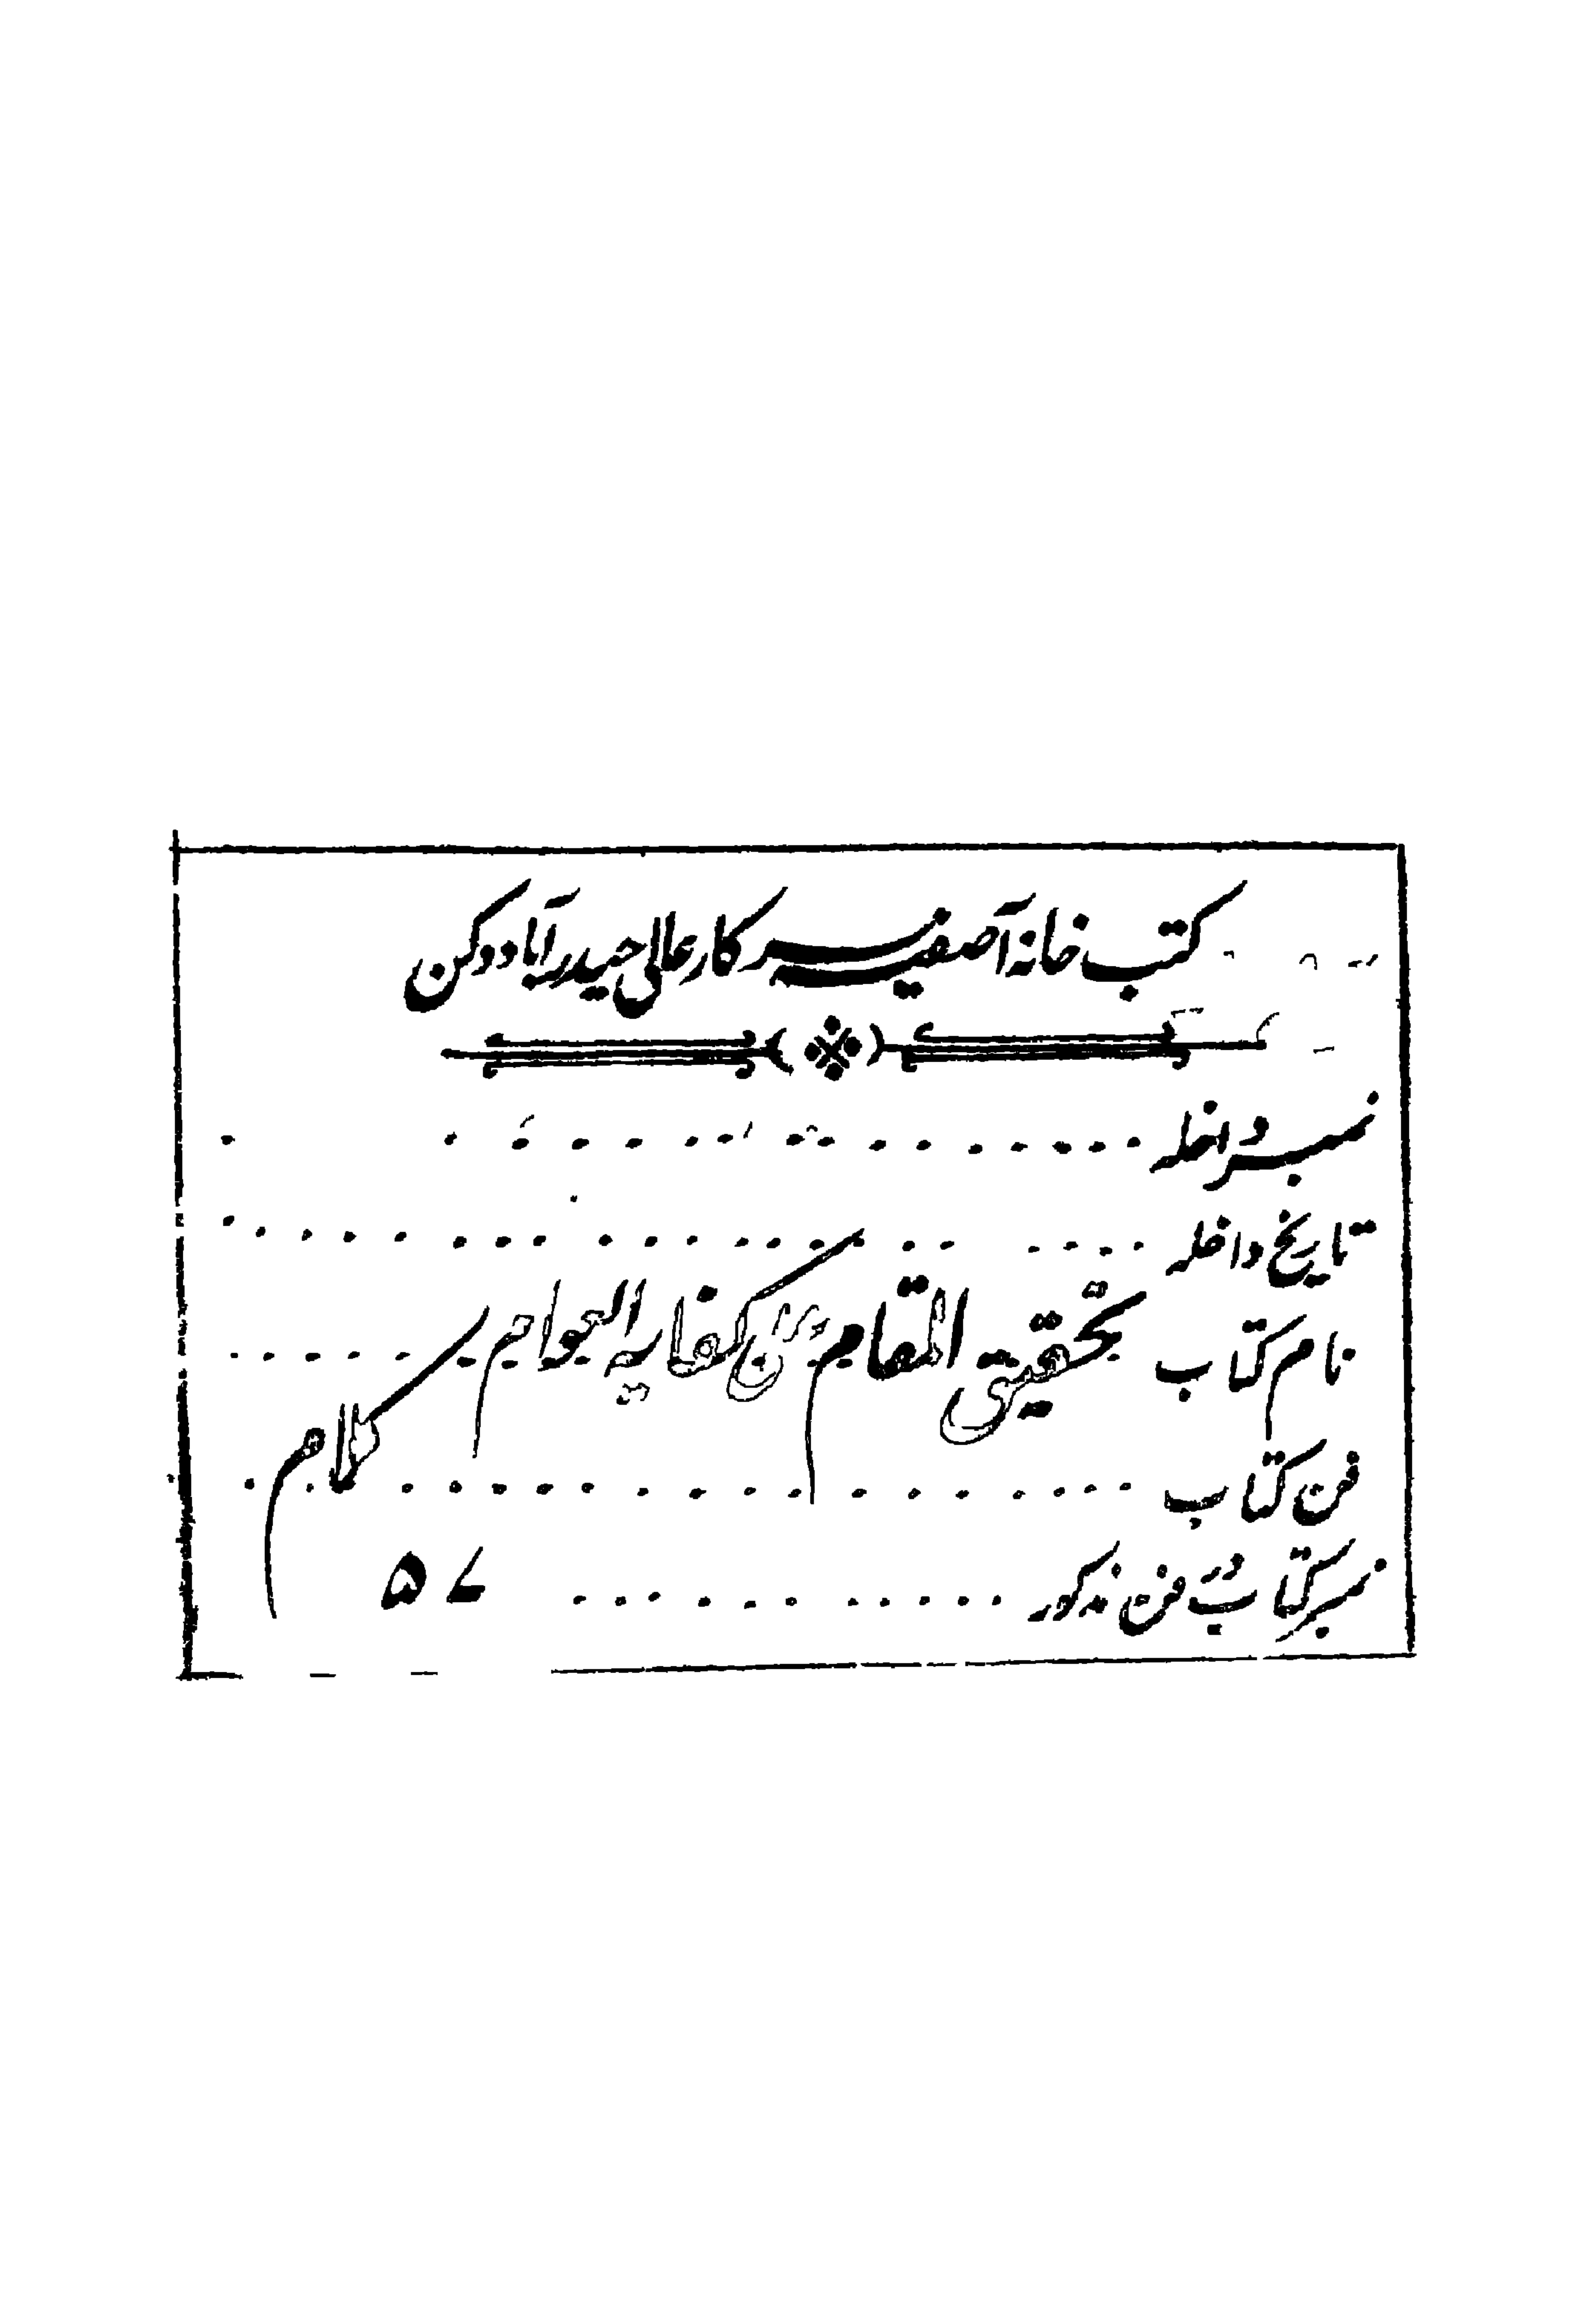 کتب خانہ آصفیہ سرکار عالی حیدرآباد دکن
نمبر داخلہ
تاریخ داخلہ
نام کتاب تحقیق المقام علی کفایہ العوام
فن کتاب کلام
نمبر کتاب در فن مذکور